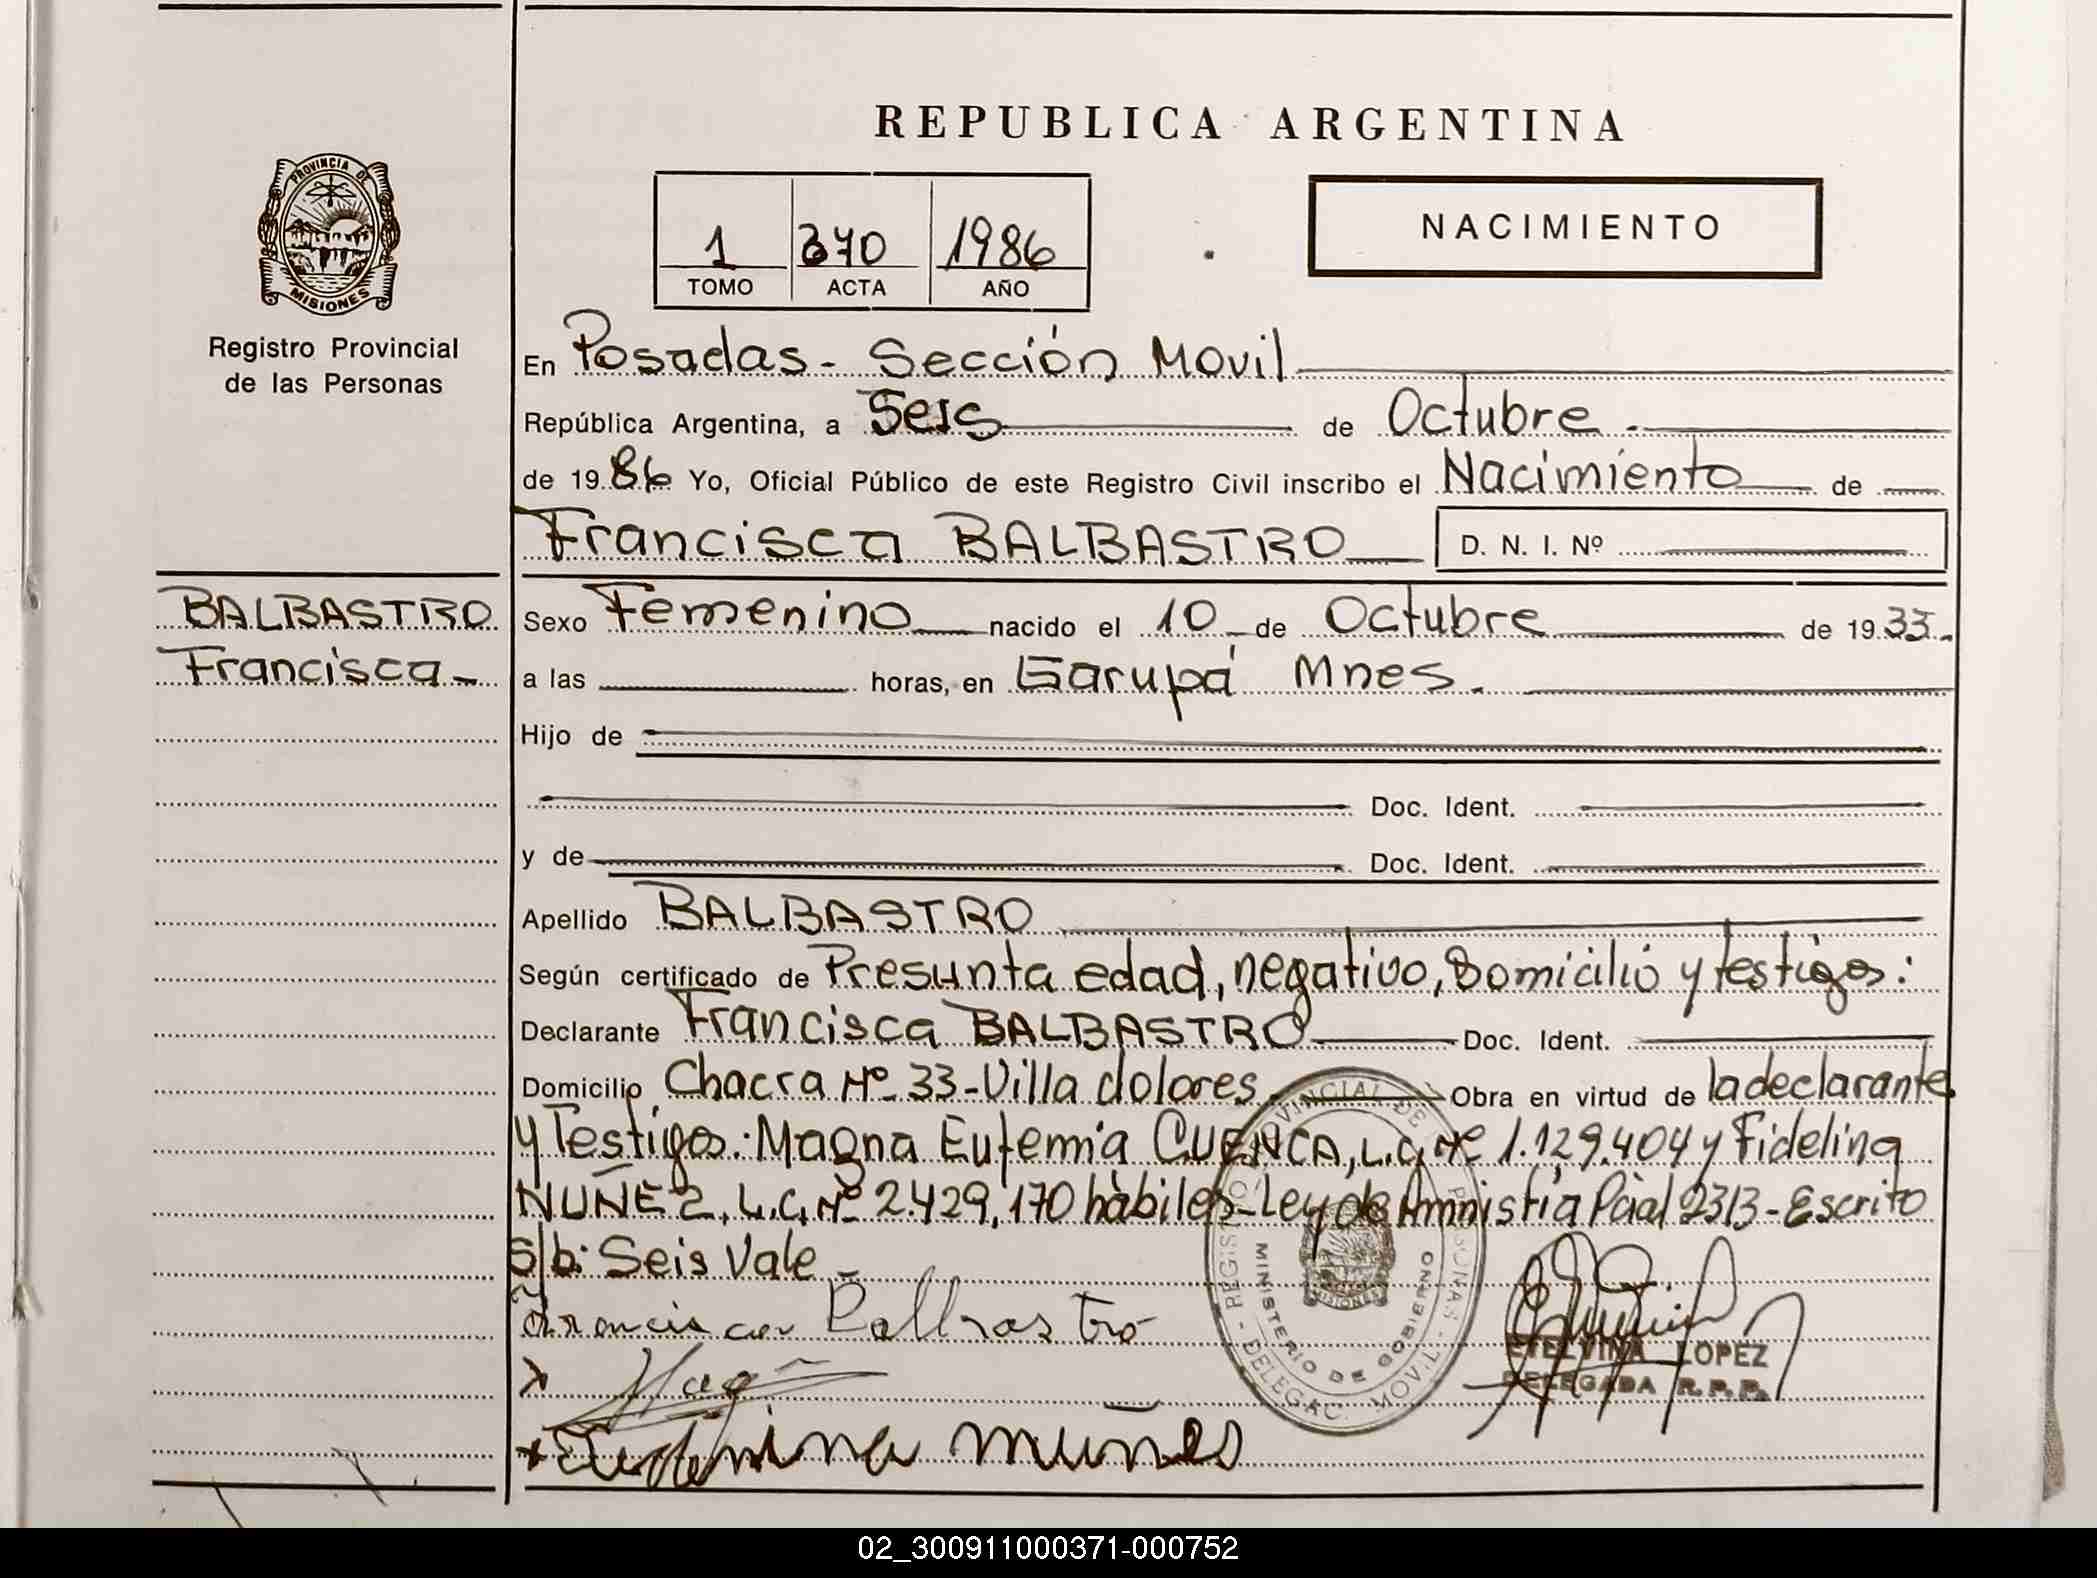 REPUBLICA ARGENTINA
PROVINCIA DE
MISIONES
Registro Provincial
de las Personas
1 370 1986
TOMO ACTA AÑO
NACIMIENTO
En Posadas - Sección Movil
República Argentina, a Seis de Octubre.
de 1986 Yo, Oficial Público de este Registro Civil inscribo el Nacimiento de
Francisca BALBASTRO D. N. I. Nº
BALBASTRO
Francisca
Sexo Femenino nacido el 10 de Octubre de 1933
a las horas, en Garupá Mnes.
Hijo de
Doc. Ident.
y de Doc. Ident.
Apellido BALBASTRO
Según certificado de Presunta edad, negativo, Domicilio y testigos:
Declarante Francisca BALBASTRO Doc. Ident.
Domicilio Chacra Nº 33 - Villa dolores Obra en virtud de la declarante
y Testigos: Magna Eufemia CUENCA, L.C. Nº 1.129.404 y Fidelina
NUÑEZ, L.C. Nº 2.429.170 hàbiles - Ley de Amnistía Pcial 2313 - Escrito
S/b: Seis Vale
Francisca Balbastro
REGISTRO PROVINCIAL DE LAS PERSONAS - DELEGAC. MOVIL -
MINISTERIO DE GOBIERNO
MISIONES
ETELVINA LOPEZ
DELEGADA R.P.P.
muñes
02_300911000371-000752